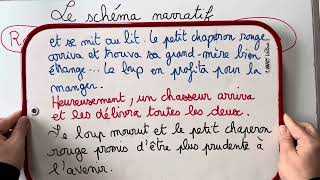 Le schéma narratif
R
et se mit au lit. le petit chaperon rouge
arriva et trouva sa grand-mère bien
étrange... le loup en profita pour la
manger.
Heureusement, un chasseur arriva
et les délivra toutes les deux.
Le loup mourut et le petit chaperon
rouge promis d'être plus prudente à
l'avenir.